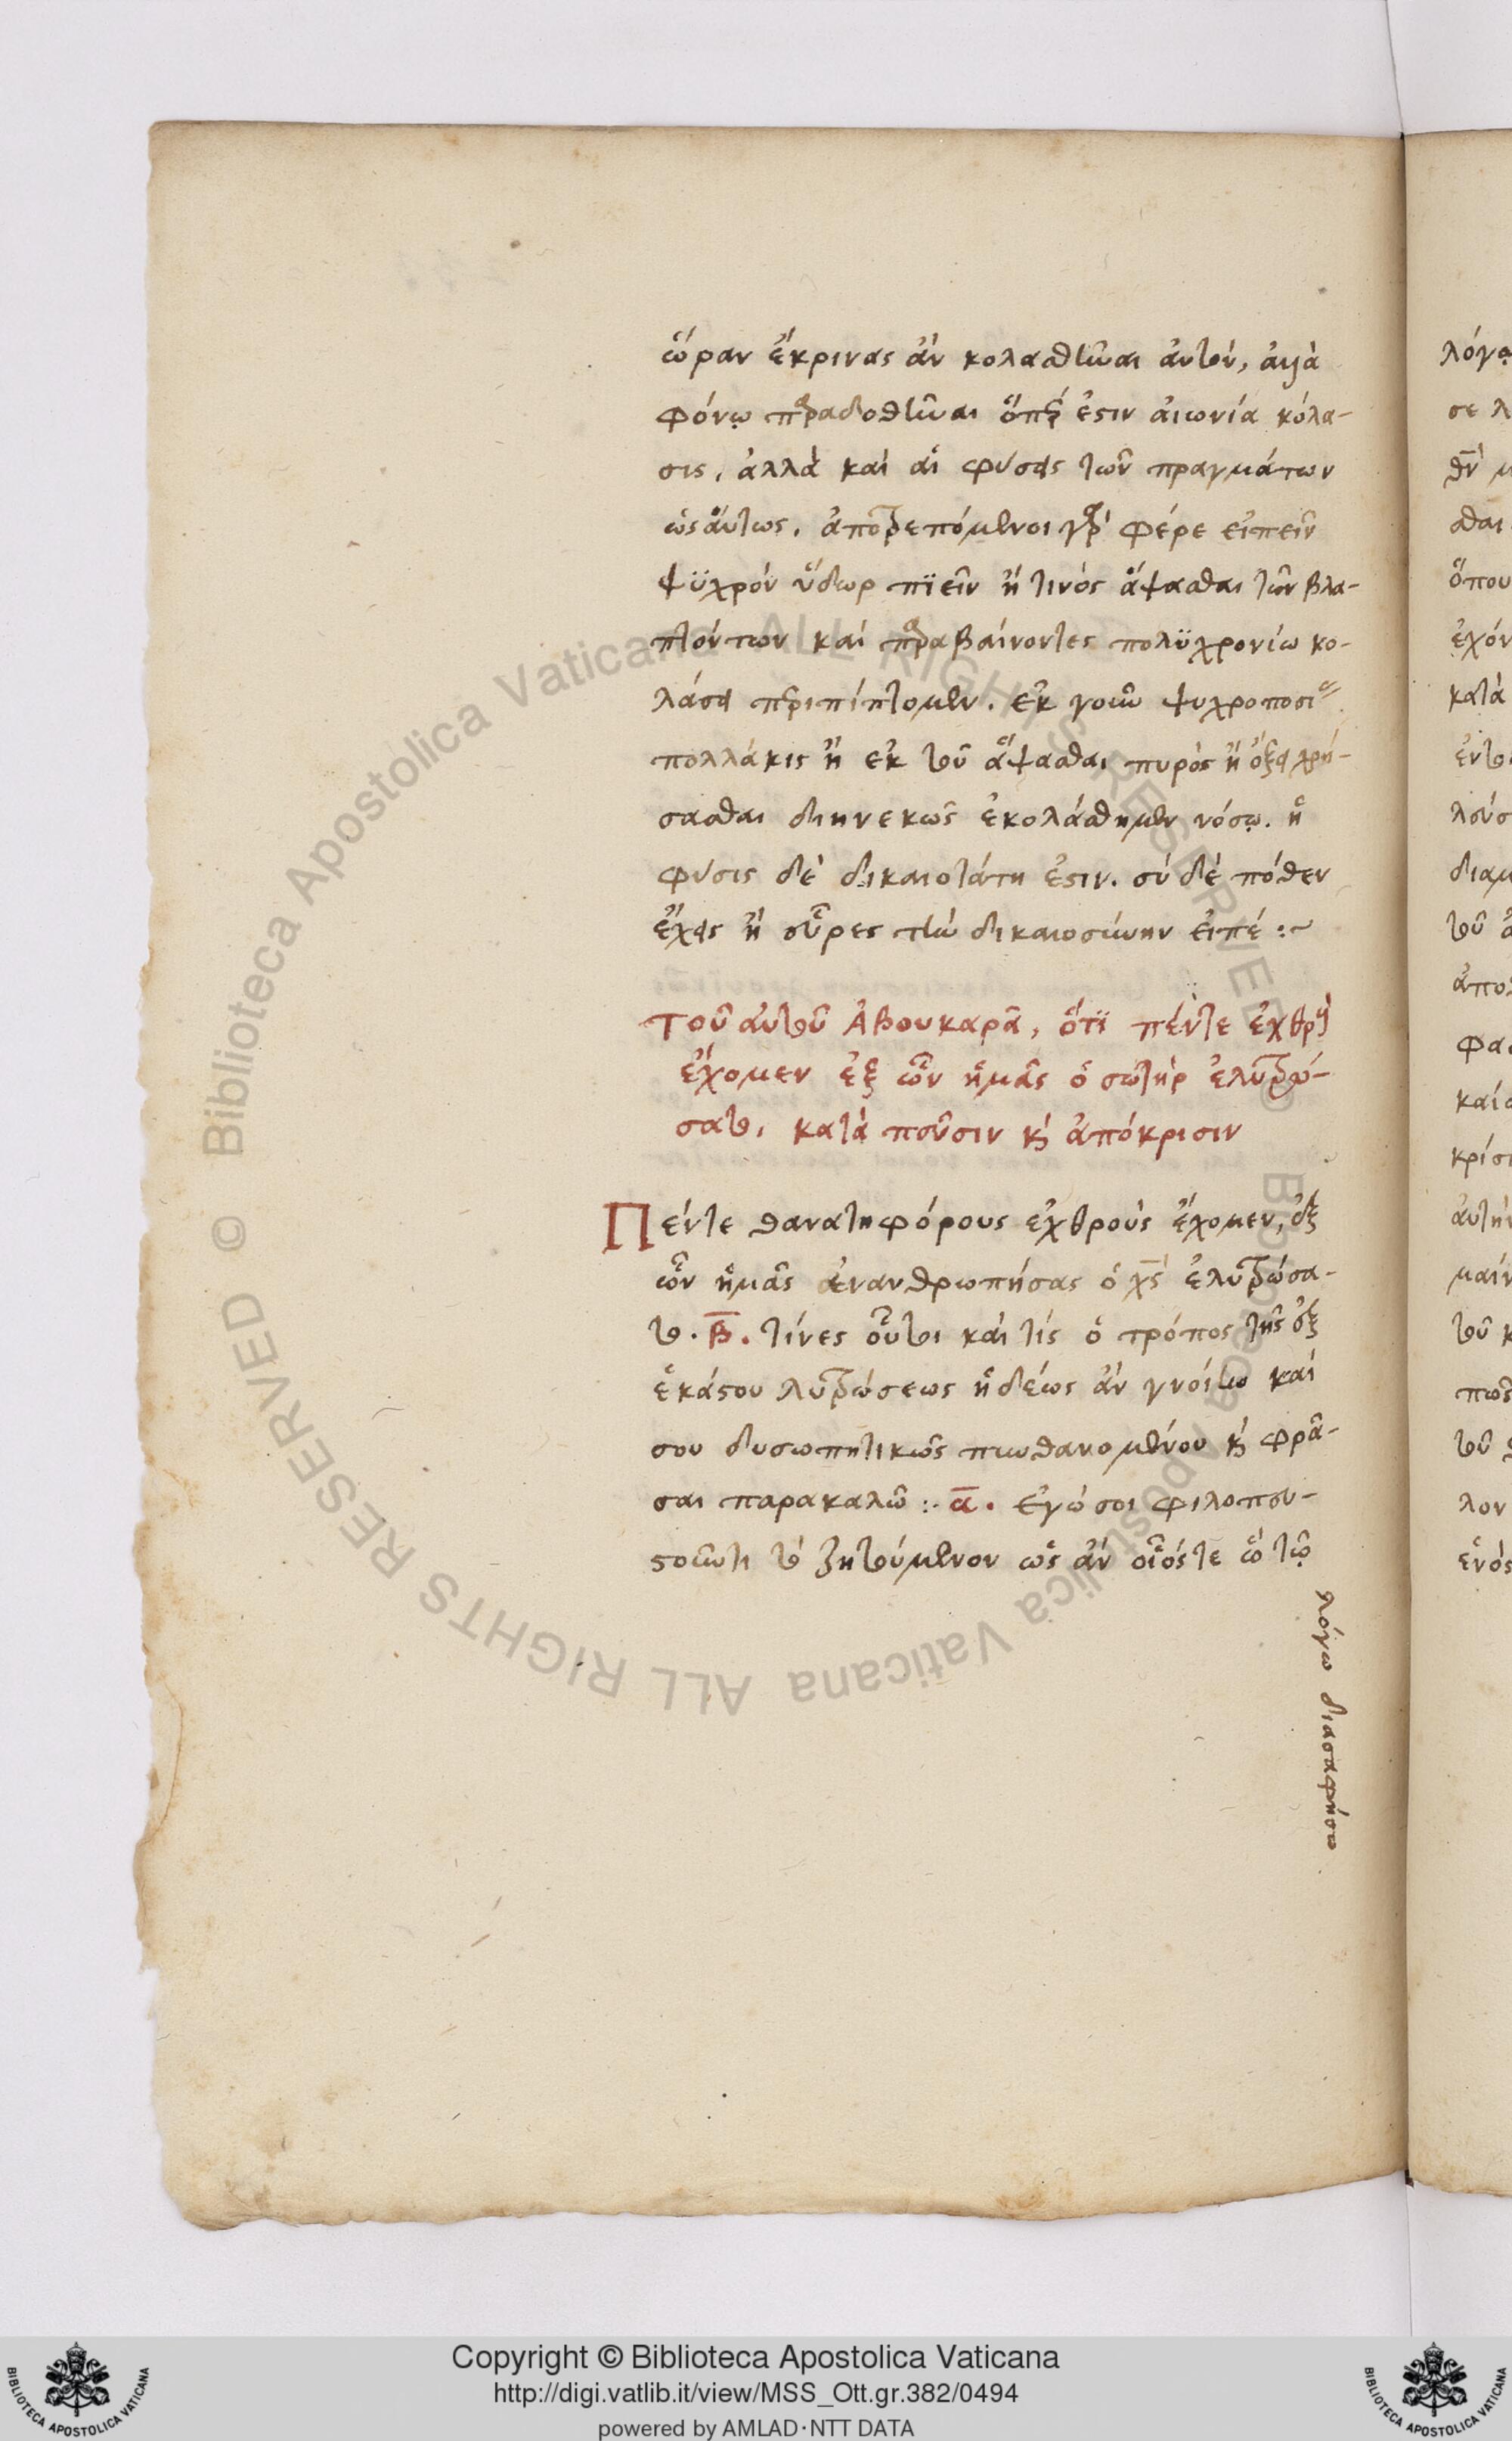 ὥραν ἔκρινας ἂν κολασθῆναι αὐτὸν, ἀλλὰ
φόνῳ παραδοθῆναι ὅπερ ἐστιν αἰωνία κόλα-
σις, ἀλλὰ καὶ αἱ φύσεις τῶν πραγμάτων
ὡσαύτως. ἀποτρεπόμενοι γὰρ φέρε εἰπεῖν
ψϋχρὸν ὕδωρ πϊεῖν ἤ τινὸς ἅψασθαι τῶν βλα-
πτόντων καὶ παραβαίνοντες πολϋχρονίω κο-
λάσει περιπίπτομεν. ἐκ γοῦν ψυχροποσίας
πολλάκις ἢ ἐκ τοῦ ἅψασθαι πυρὸς ἢ ὄξει χρή-
σασθαι διηνεκῶς ἐκολάσθημεν νόσῳ. ἡ
φύσις δὲ δικαιοτάτη ἐστιν. σὺ δὲ πόθεν
ἔχεις ἢ εὗρες τὴν δικαιοσύνην εἰπέ :~
Τοῦ αὐτοῦ Ἀβουκαρᾶ, ὅτϊ πέντε ἐχθροὺς
ἔχομεν ἐξ ὧν ἡμᾶς ὁ σωτὴρ ἐλυτρώ-
σατο, κατὰ πεῦσιν καὶ ἀπόκρισιν
Πέντε θανατηφόρους ἐχθροὺς ἔχομεν, ἐξ
ὧν ἡμᾶς ἐνανθρωπήσας ὁ χς ἐλυτρώσα-
το. β. τίνες οὗτοι καὶ τίς ὁ τρόπος τῆς ἐξ
ἑκάστου λυτρώσεως ἡδέως ἂν γνοίην καί
σου δυσωπητικῶς πυνθανομένου καὶ φρά-
σαι παρακαλῶ :. α. ἐγώ σοι φιλοπευ-
στοῦντι τὸ ζητούμενον ὡς ἂν οἷός τε ὦ τῷ
λόγω διασαφήσω
Copyright © Biblioteca Apostolica Vaticana
http://digi.vatlib.it/view/MSS_Ott.gr.382/0494
powered by AMLAD·NTT DATA